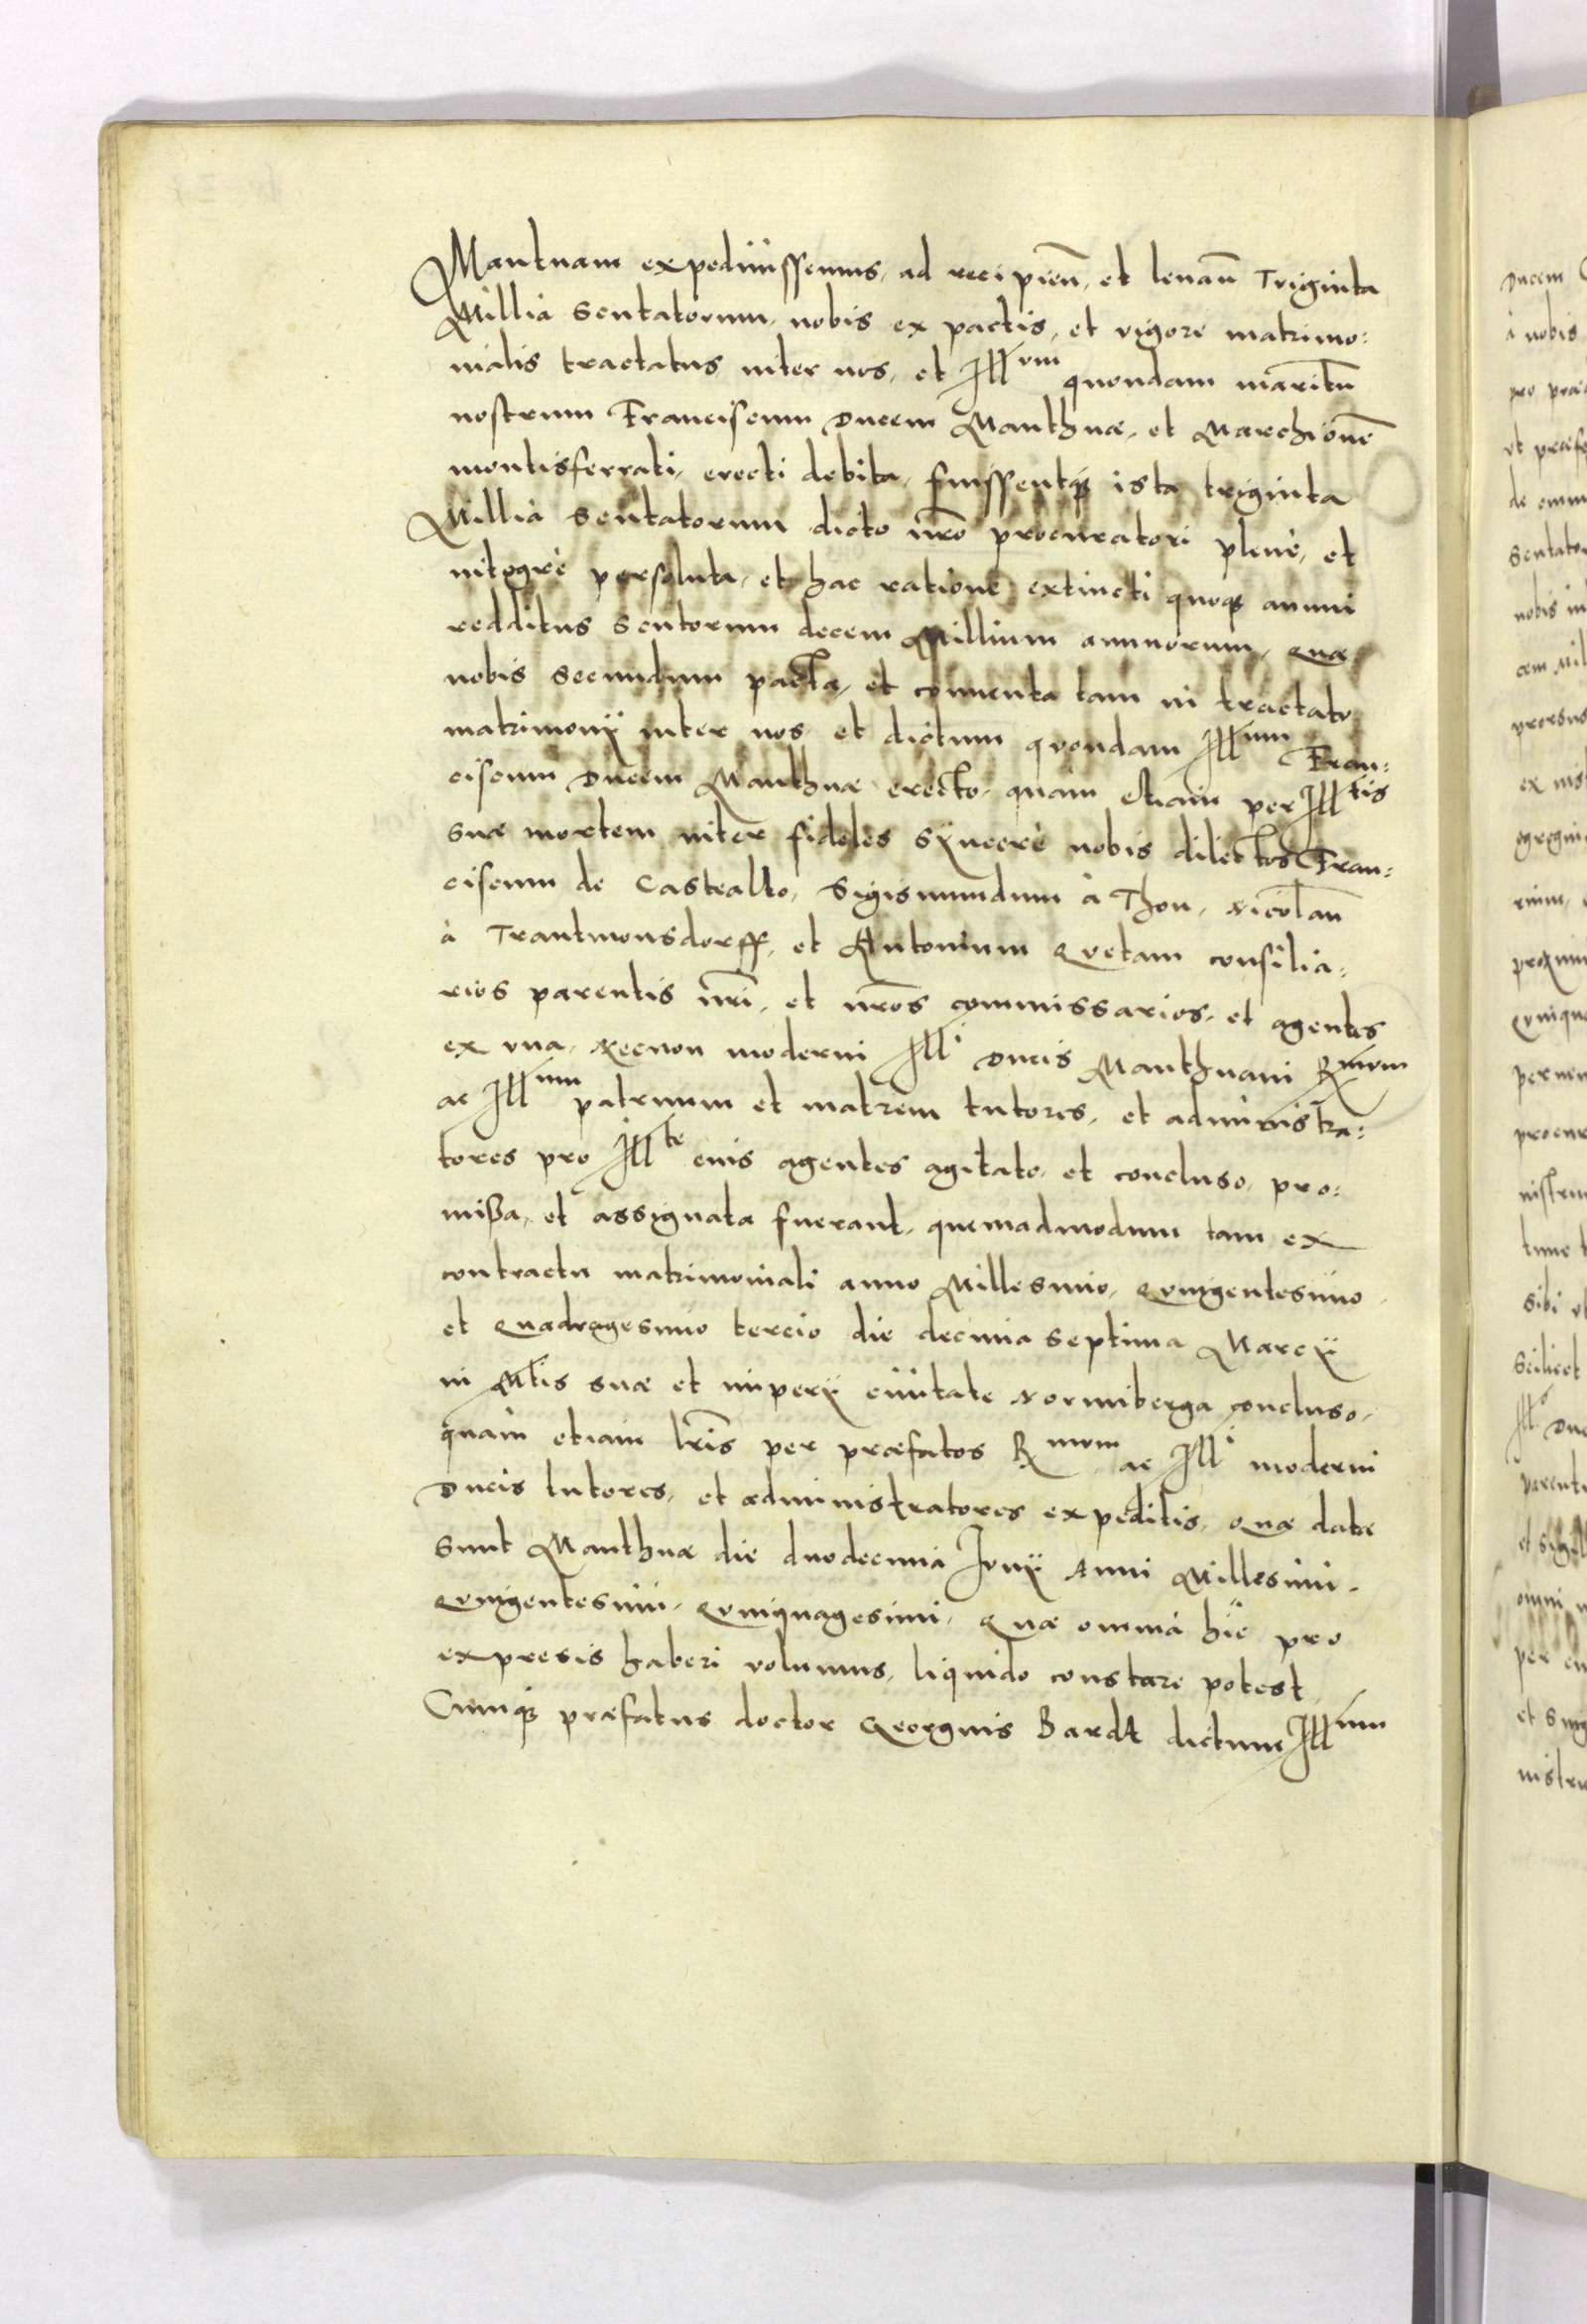 Mantuam expediuissemus, ad recipien̄, et leuan̄ Triginta
Millia Scutatorum, nobis ex pactis, et vigore matrimo:
nialis tractatus inter nos, et Illum quondam maritū
nostrum Franciscum Ducem Manthuæ, et Marchionē
montisferrati, erecti debita, fuissentq3 ista triginta
Millia Scutatorum dicto nr̄o procuratori plenè, et
integrè persoluta, et hac ratione extincti quoq3 annui
redditus Scutorum decem Millium annuorum, quæ
nobis secundum pacta, et conuenta tam in tractato
matrimonÿ inter nos et dictum quondam Illum Fran:
ciscum Ducem Manthuæ erecto, quam etiam per Illtis
suæ mortem inter fideles sÿncerè nobis dilectos Fran:
ciscum de Castealto, Sigismundum à Thon, Nicolaū
à Trautmonsdorff, et Antonium Quetam consilia:
rios parentis nr̄i, et nr̄os commissarios, et agentes
ex vna, Necnon moderni Illi Ducis Manthuani Rmum
ac Illum patruum et matrem tutores, et administra:
tores pro Illte eius agentes agitato, et concluso, pro:
missa, et assignata fuerant, quemadmodum tam ex
contractu matrimoniali anno Millesimo, Quingentesimo
et Quadragesimo tercio die decima septima Marcÿ
in Mtis suæ et imperÿ ciuitate Normiberga concluso,
quàm etiam lr̄is per præfatos Rmum ac Illi moderni
Ducis tutores, et administratores expeditis, quæ datæ
sunt Manthuæ die duodecima Junÿ Anni Millesimi
Quingentesimi, Quinquagesimi, Quæ omnia hic pro
expresis haberi volumus, liquido constare potest
Cumq3 præfatus doctor Georgius Bardt dictum Illum